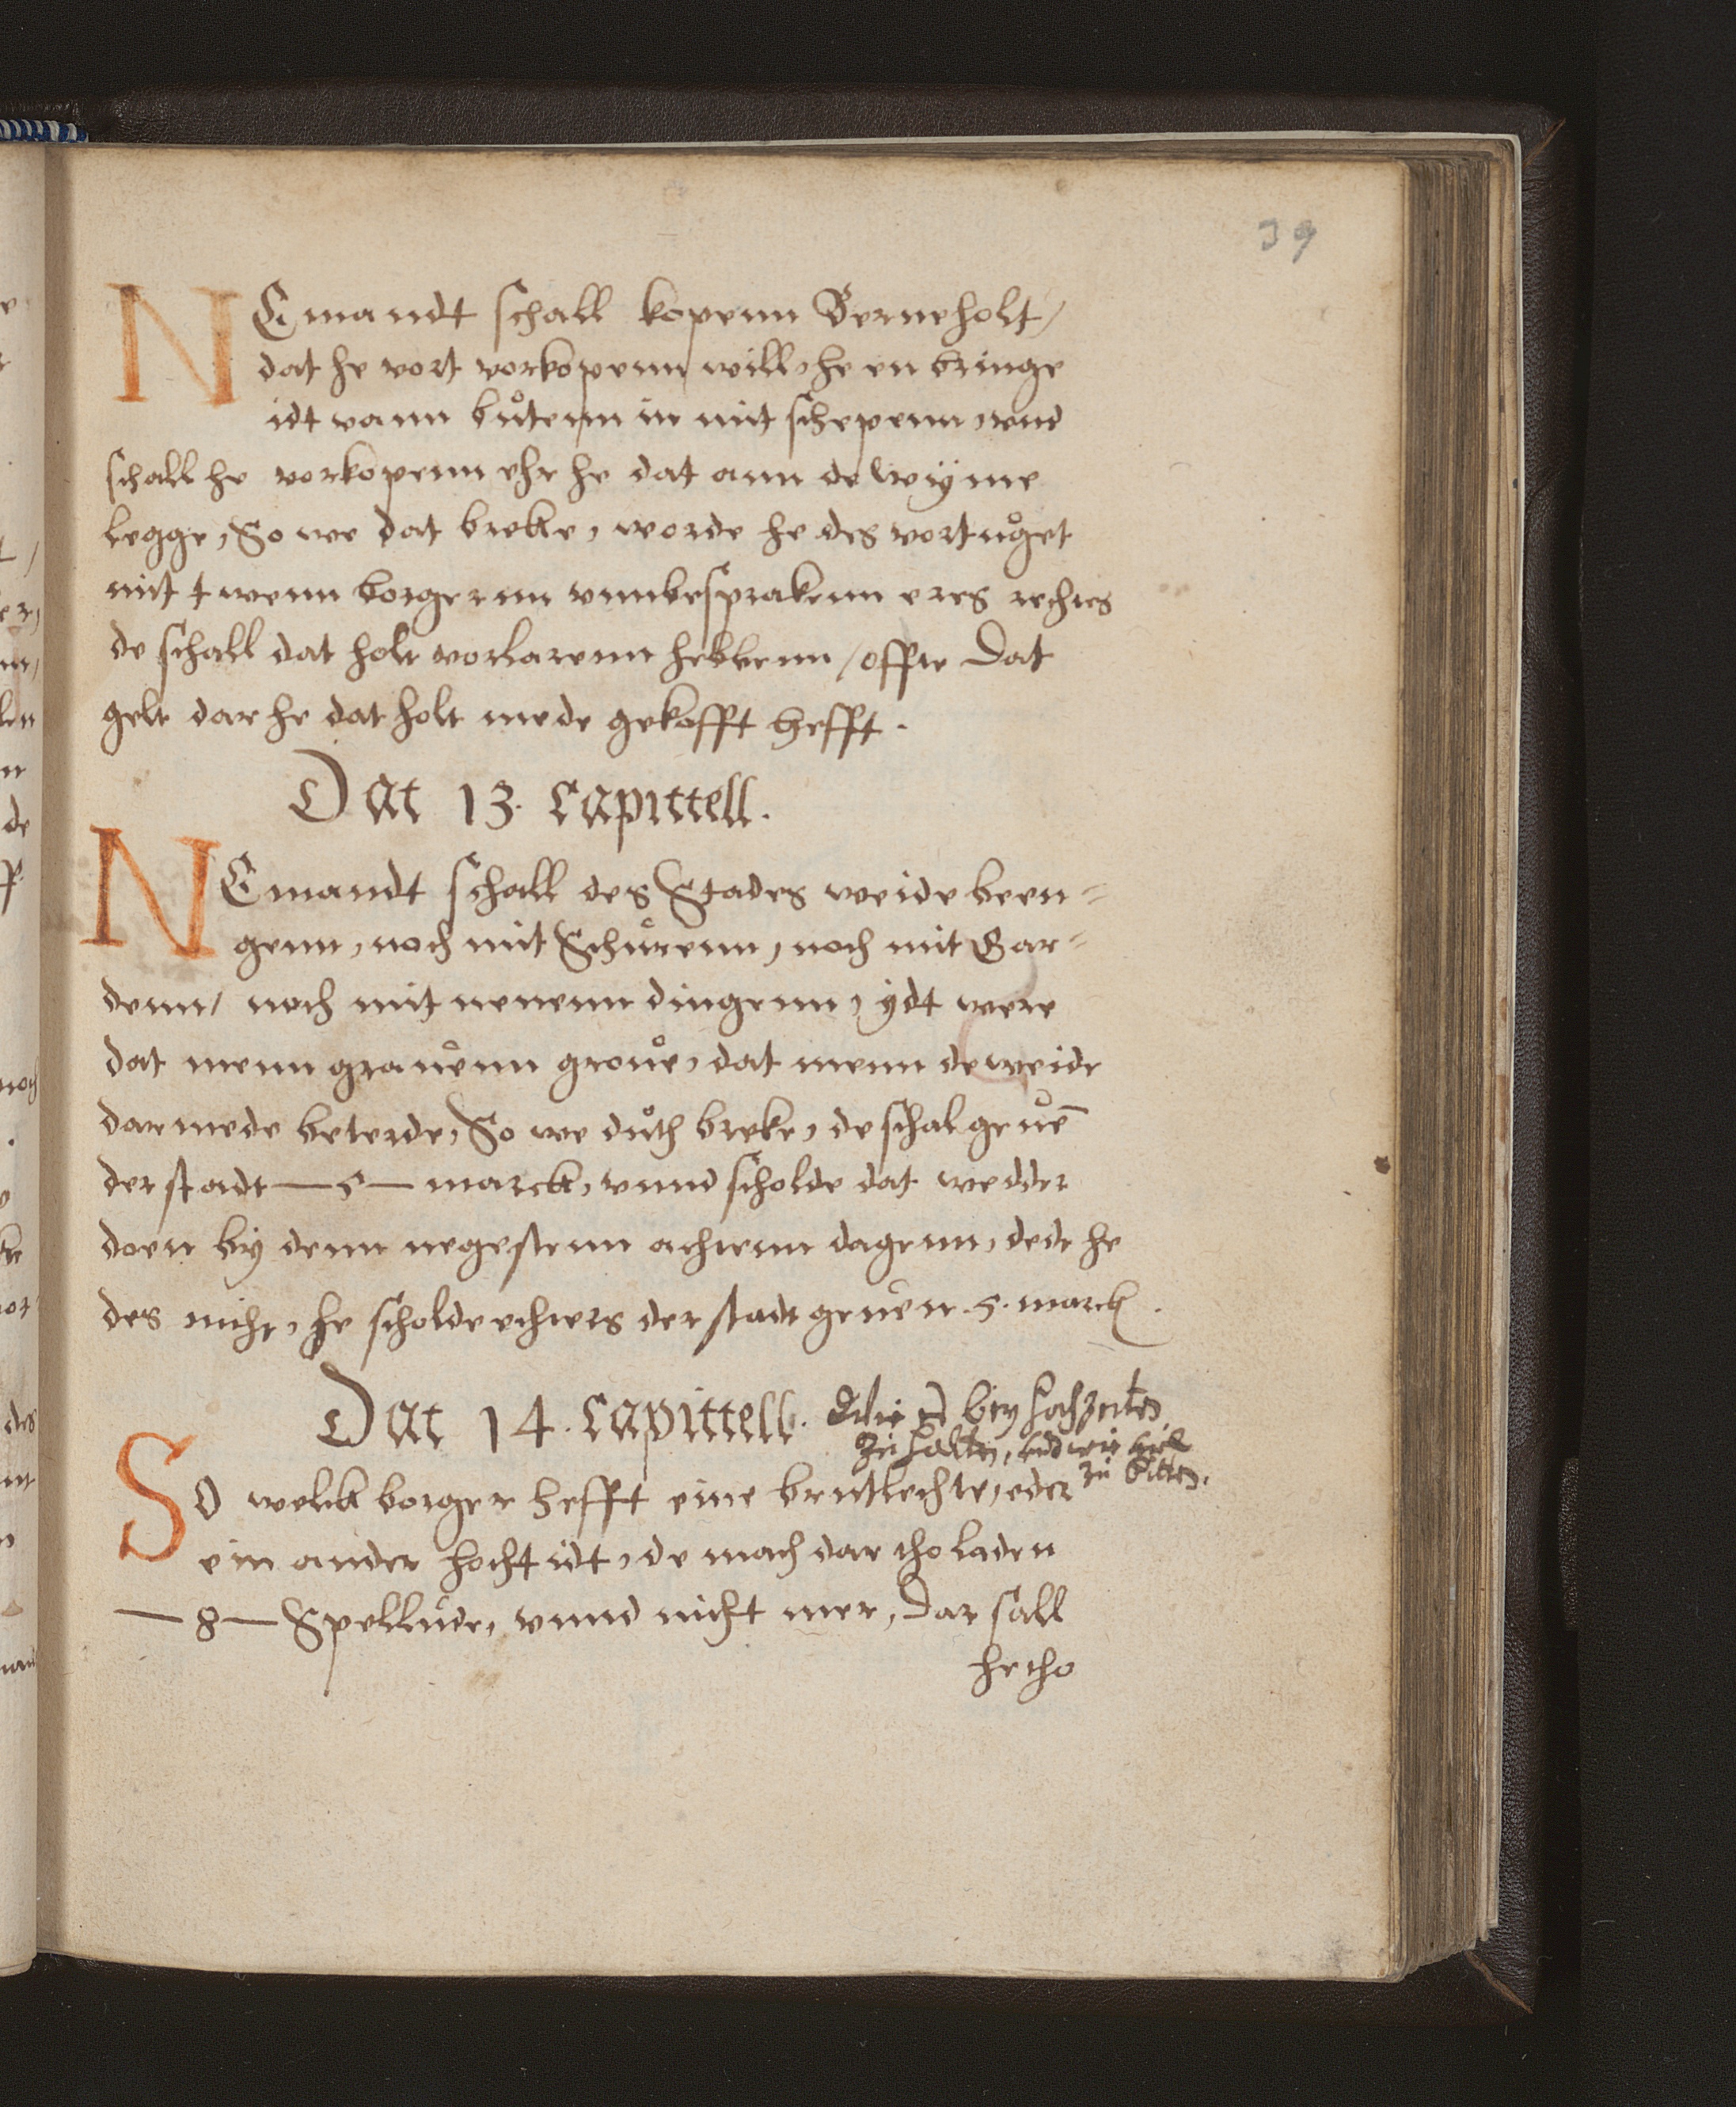 39
NEmandt schall kopenn Berneholt/
dat he vort vorkopenn will, he en bringe
idt vann bůtenn in mit schepenn, vnd
schall he vorkopenn ehr he dat ann de
legge, So we dat brekke, worde he des vortuget
mit twenn borgerenn vnnbesprakenn eres rechtes
de schall dat holt vorlarenn hebbenn / offte dat
gelt dar he dat holt mede gekofft hefft.
Dat 13. Capittell.
NEmandt schall des Stades weide been=
genn, noch mit Schürenn, noch mit Gar=
denn / noch mit nenenn dingenn, ÿdt were
dat menn grauenn groue, dat menn de weide
darmede beterde, So we duth breke, de schal geuē
der stadt — 5 — marck, vnnd scholde dat wedder
doen bÿ denn negestenn achtenn dagenn, dede he
des nicht, he scholde echters der stadt geuen .5. marck.
Dat 14. Capittell. Wie bey hochzeiten
zu halten, vnd wie viel
zu bitten.
SO welck borger hefft eine brutlechte, eder
ein ander hochtidt, de mach dar tho laden
— 8 — Spellude, vnnd nicht mer, Dar sall
he tho